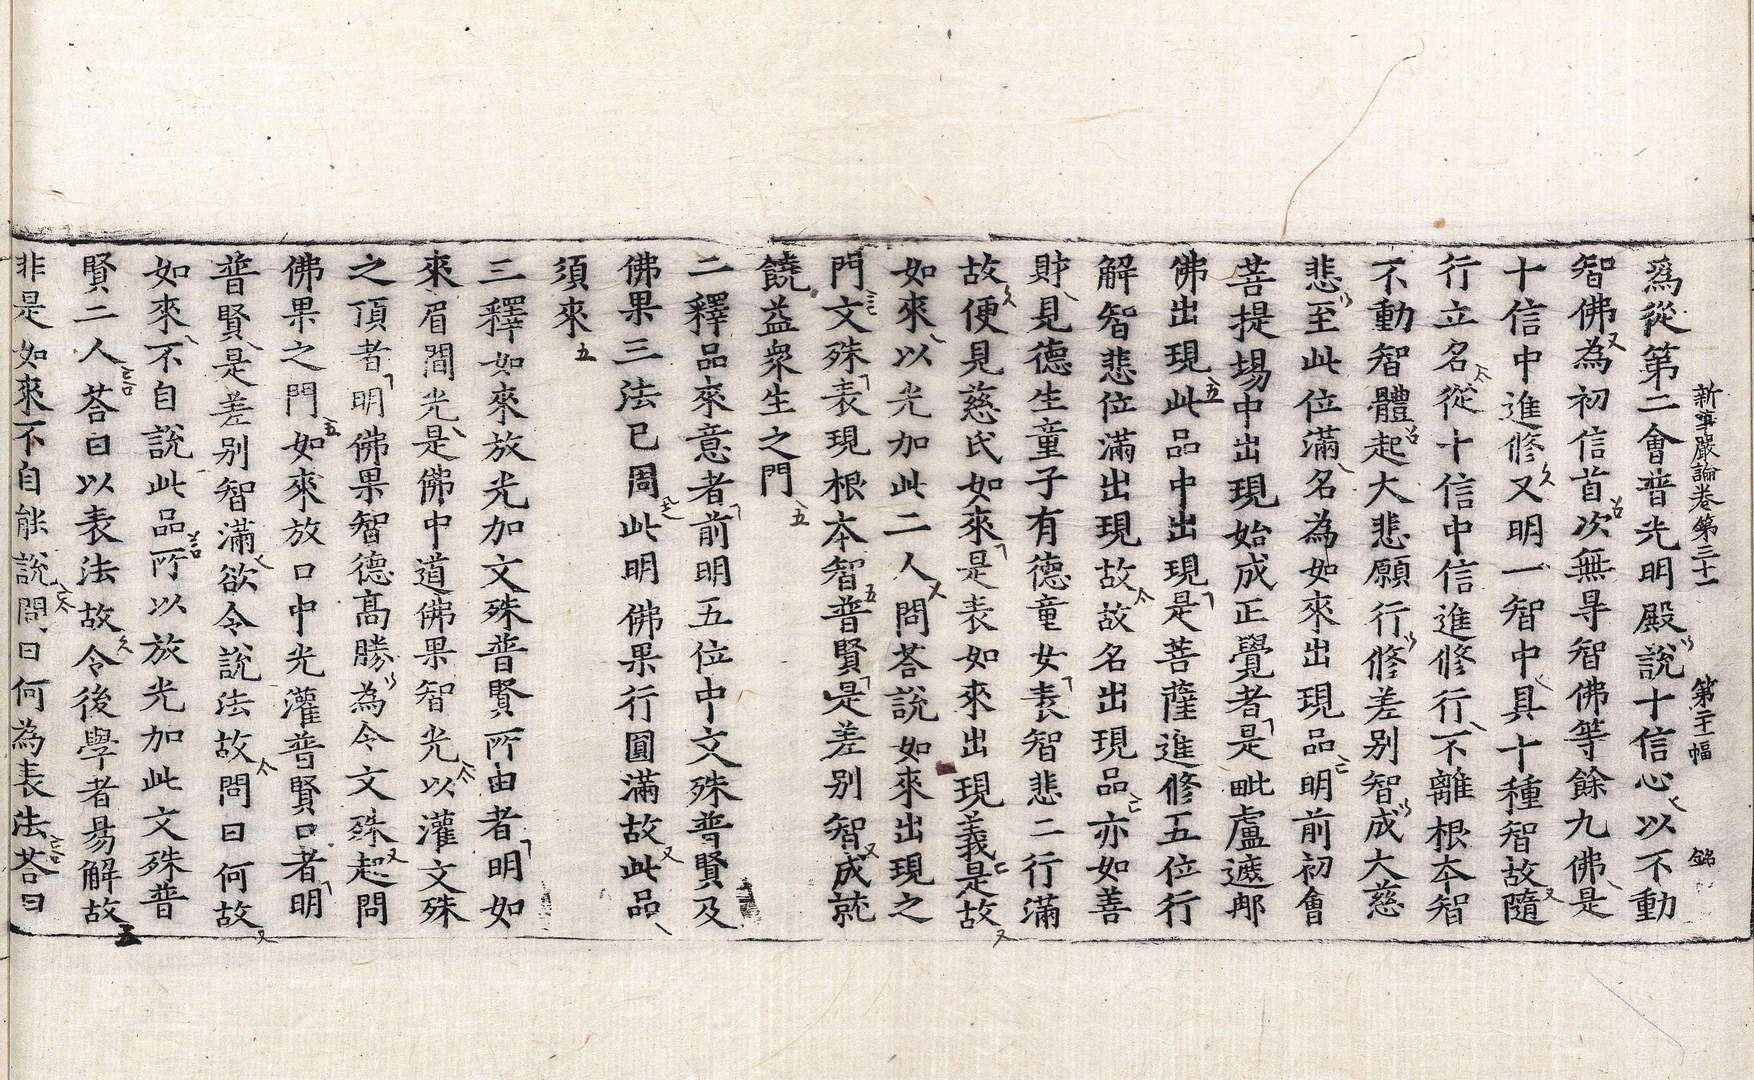 新華嚴論卷第三十一 第二十一幅 銘
為從第二會普光明殿說十信心以不動
智佛為初信首次無㝵智佛等餘九佛是
十信中進修又明一智中具十種智故隨
行立名從十信中信進修行不離根本智
不動智體起大悲願行修差別智成大慈
悲至此位滿名為如來出現品明前初會
菩提場中出現始成正覺者是毗盧遮那
佛出現此品中出現是菩薩進修五位行
解智悲位滿出現故故名出現品亦如善
財見德生童子有德童女表智悲二行滿
故便見慈氏如來是表如來出現義是故
如來以光加此二人問荅說如來出現之
門文殊表現根本智普賢是差別智成就
饒益衆生之門
二釋品來意者前明五位中文殊普賢及
佛果三法已周此明佛果行圓滿故此品
須來
三釋如來放光加文殊普賢所由者明如
來眉間光是佛中道佛果智光以灌文殊
之頂者明佛果智德高勝為令文殊起問
佛果之門如來放口中光灌普賢口者明
普賢是差別智滿欲令說法故問曰何故
如來不自說此品所以放光加此文殊普
賢二人荅曰以表法故令後學者易解故
非是如來不自能說問曰何為表法荅曰